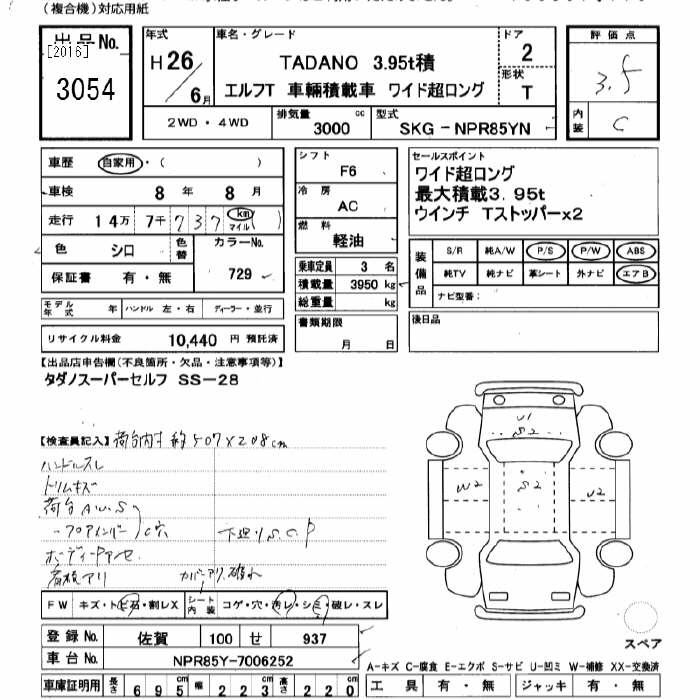 (複合機)対応用紙
出品No. [2016] 3054
年式 H26/6月
車名・グレード TADANO 3.95t積
エルフT 車輛積載車 ワイド超ロング
ドア 2
形状 T
評価点 3.5
内装 C
2WD・4WD
排気量 3000 cc
型式 SKG-NPR85YN
車歴 自家用・( )
車検 8年 8月
走行 14万7千737km マイル ( )
色 シロ 色替 カラーNo. 729
保証書 有・無
モデル年式 年 ハンドル 左・右 ディーラー・並行
リサイクル料金 10,440 円 預託済
シフト F6
冷房 AC
燃料 軽油
乗車定員 3 名
積載量 3950 kg
総重量 kg
書類期限 月 日
セールスポイント
ワイド超ロング
最大積載3.95t
ウインチ Tストッパーx2
装備品 S/R 純A/W P/S P/W ABS
純TV 純ナビ 革シート 外ナビ エアB
ナビ型番:
後日品
【出品店申告欄(不良箇所・欠品・注意事項等)】
タダノスーパーセルフ SS-28
【検査員記入】荷台内寸 約507×208cm
ハンドルスレ
トリムキズ
荷台 A.U.S
フロアメンバー C穴
下廻りS.C.P
カバーアリ 破れ
U1
S2
W2 S2 U2
FW キズ・トビ石・割レX シート内装 コゲ・穴・汚レ・シミ・破レ・スレ
登録No. 佐賀 100 せ 937
車台No. NPR85Y-7006252
スペア
A-キズ C-腐食 E-エクボ S-サビ U-凹ミ W-補修 XX-交換済
車庫証明用 長さ 695 幅 223 高さ 220
工具 有・無 ジャッキ 有・無